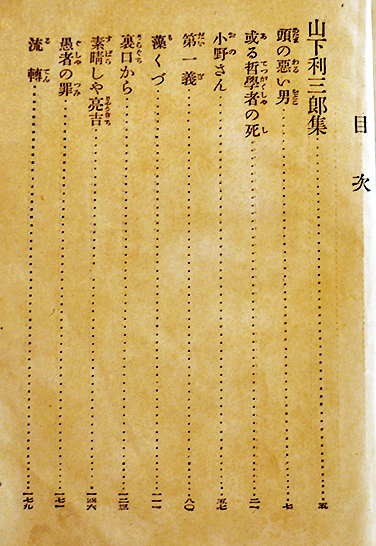 目次
山下利三郎集……五
頭の悪い男……七
或る哲學者の死……二一
小野さん……五七
第一義……八〇
藻くづ……一一一
裏口から……一二三
素晴しや亮吉……一四六
愚者の罪……一七一
流轉……一七九